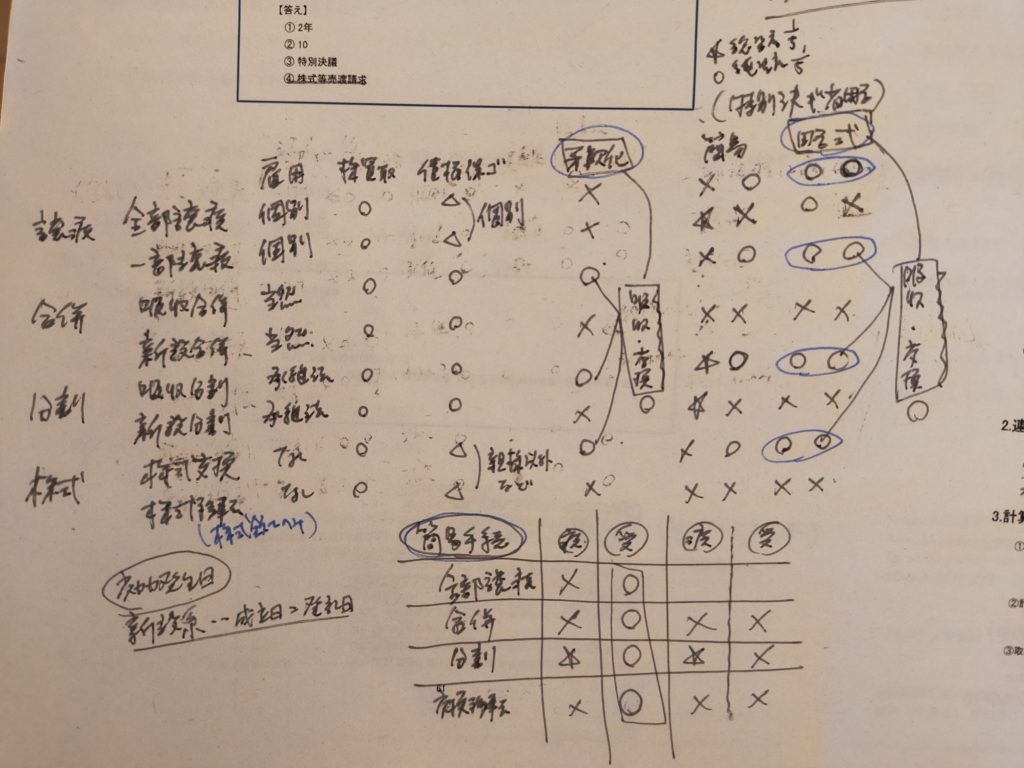 【答え】
① 2年
② 10
③ 特別決議
④ 株式等売渡請求
☆ 総資産 1/5
○ 純資産 1/5
(特別決議省略)
雇用 株買取 債権保ゴ 柔軟化 簡易 略式
譲渡 全部譲渡 個別 ○ △ 個別 × × ○ ○ ○
一部譲渡 個別 ○ △ × ☆ × ○ ×
合併 吸収合併 当然 ○ ○ ○ × ○ ○ ○
新設合併 当然 ○ ○ × × × × ×
分割 吸収分割 承継法 ○ ○ ○ ☆ ○ ○ ○
新設分割 承継法 ○ ○ × ☆ × × ×
株式 株式交換 なし ○ △ 新株以外など ○ × ○ ○ ○
株式移転 なし ○ △ × × × × ×
吸収・交換 ○
吸収・交換 ○
簡易手続 渡 受 渡 受
全部譲渡 × ○
合併 × ○ × ×
分割 ☆ ○ ☆ ×
交換移転 × ○ × ×
効力発生日
新設系…成立日=登記日
2.連
3.計算
①
②
③取